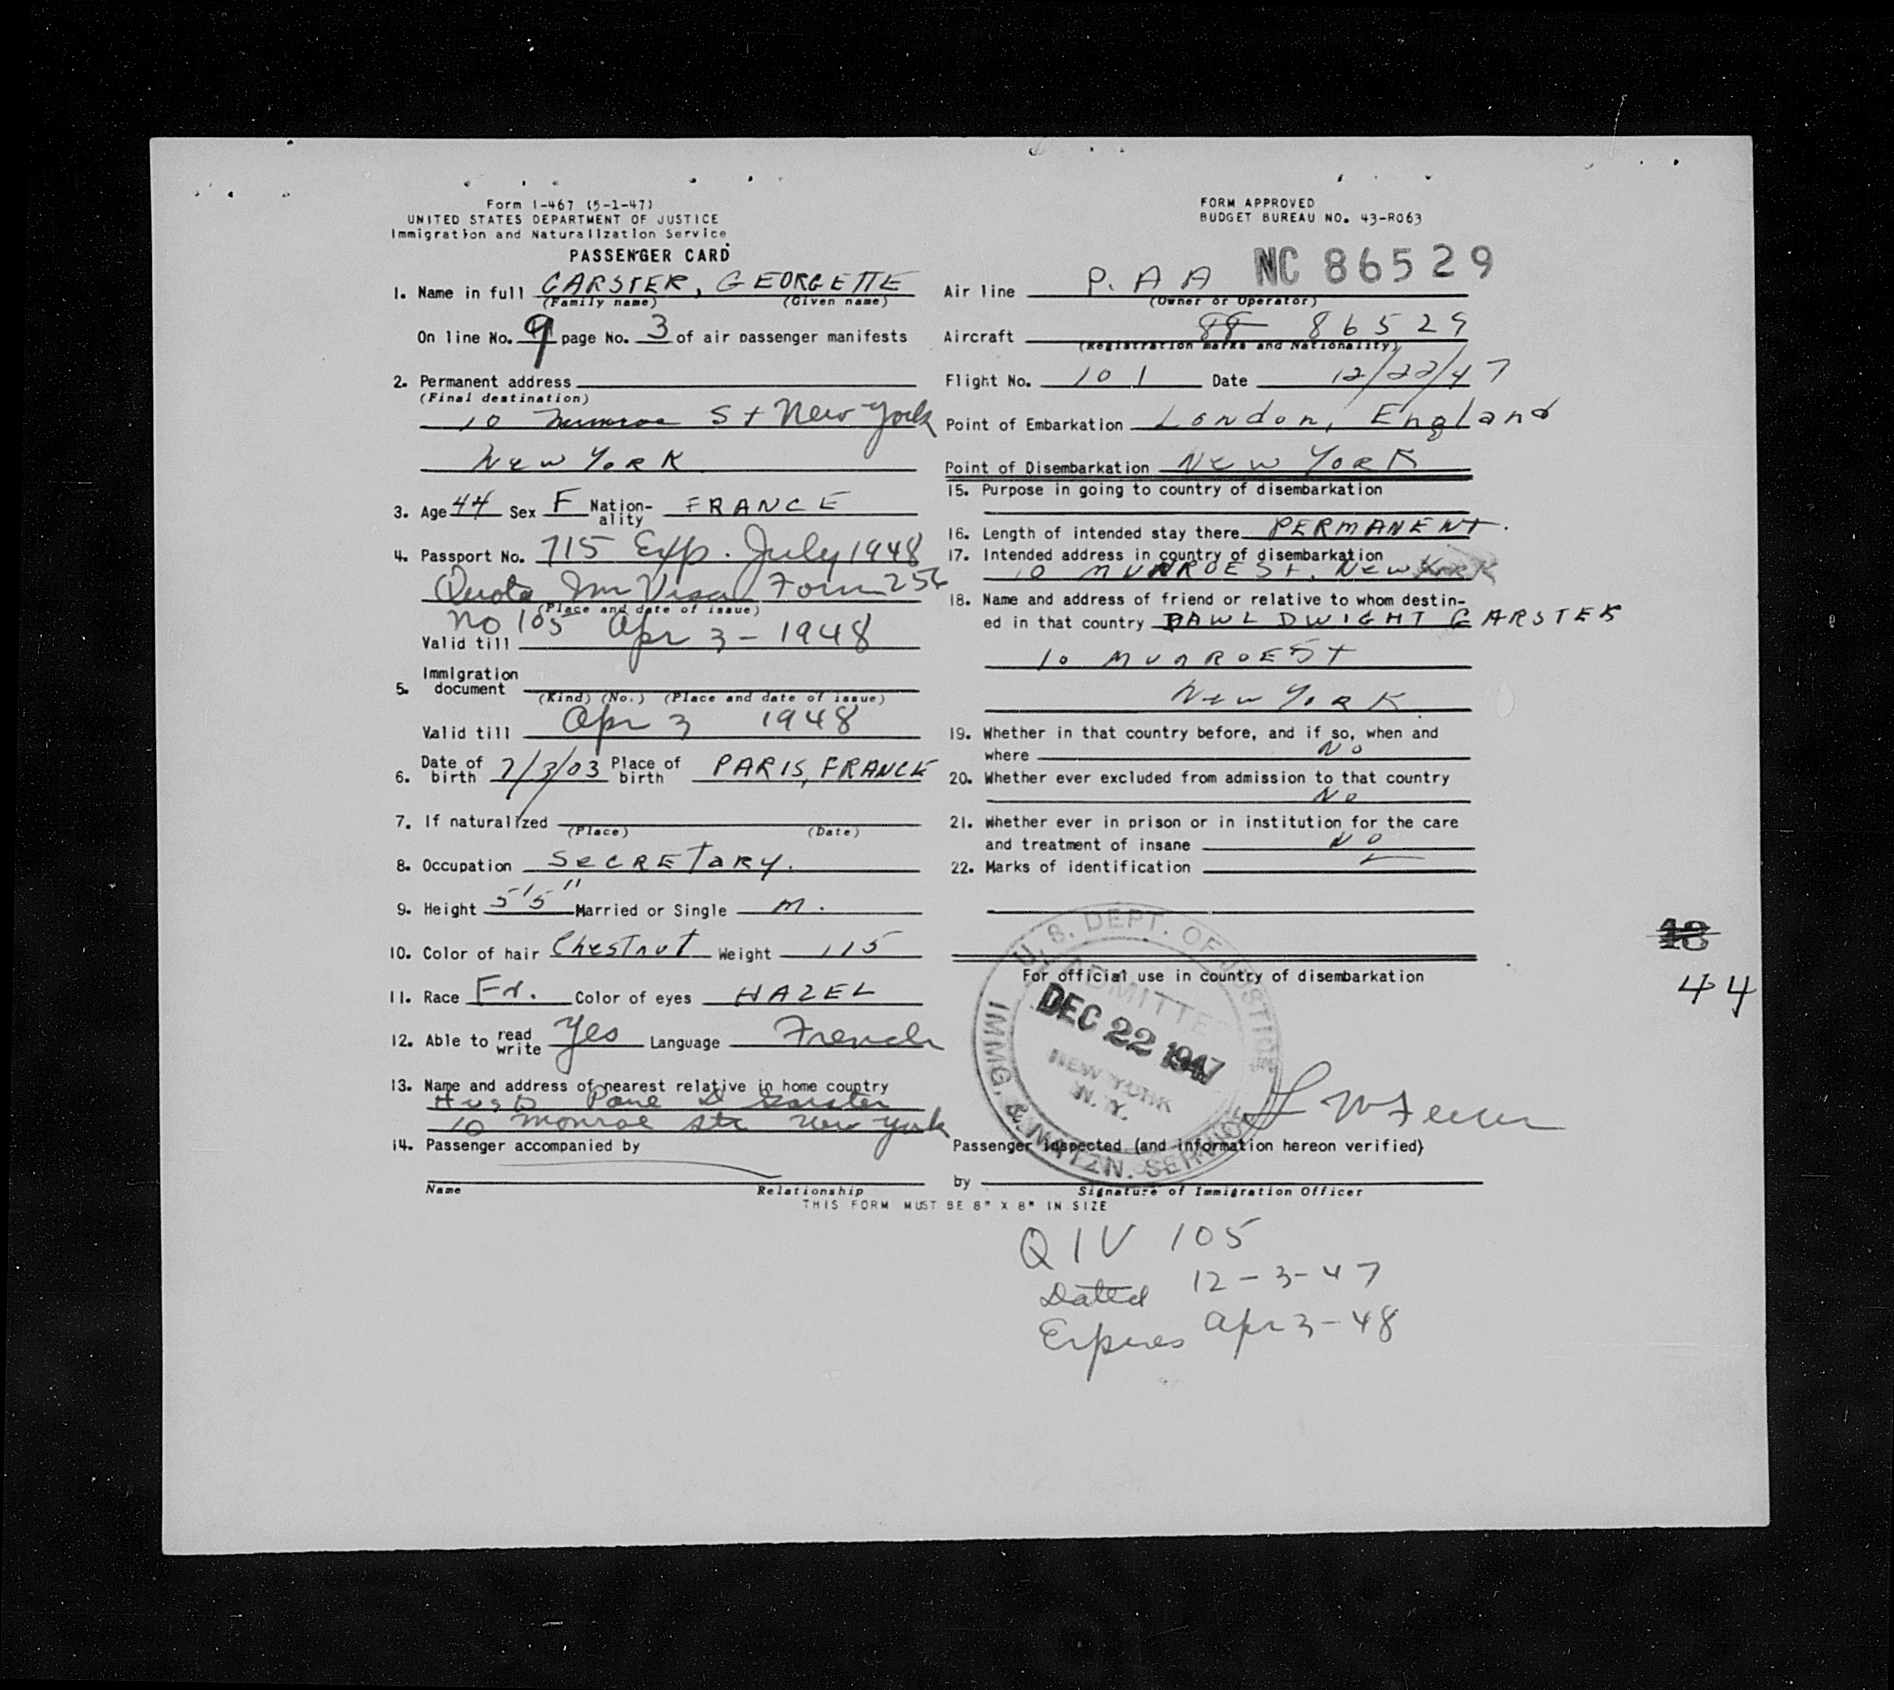 Form I-467 (5-1-47)
UNITED STATES DEPARTMENT OF JUSTICE
Immigration and Naturalization Service
PASSENGER CARD
FORM APPROVED
BUDGET BUREAU NO. 43-R063
NC 86529
1. Name in full GARSTER, GEORGETTE
(Family name) (Given name)
On line No. 9 page No. 3 of air passenger manifests
2. Permanent address
(Final destination)
10 Munroe St New York
New York
3. Age 44 Sex F Nation-ality FRANCE
4. Passport No. 715 Exp. July 1948
Quota Im Visa Form 256
(Place and date of issue)
No 105
Valid till Apr 3 - 1948
5. Immigration document
(Kind) (No.) (Place and date of issue)
Valid till Apr 3 1948
6. Date of birth 7/3/03 Place of birth PARIS, FRANCE
7. If naturalized
(Place) (Date)
8. Occupation SECRETARY.
9. Height 5'5" Married or Single M.
10. Color of hair Chestnut Weight 115
11. Race Fr. Color of eyes HAZEL
12. Able to read write Yes Language French
13. Name and address of nearest relative in home country
Husb D Garster
10 Monroe Str New York
14. Passenger accompanied by
Name Relationship
Air line P. A A
(Owner or Operator)
Aircraft 88 86529
(Registration marks and Nationality)
Flight No. 101 Date 12/22/47
Point of Embarkation London, England
Point of Disembarkation New York
15. Purpose in going to country of disembarkation
16. Length of intended stay there PERMANENT.
17. Intended address in country of disembarkation
10 MUNROE St. New York
18. Name and address of friend or relative to whom destin-
ed in that country PAWL DWIGHT GARSTER
10 MUNROE ST
New York
19. Whether in that country before, and if so, when and
where No
20. Whether ever excluded from admission to that country
No
21. Whether ever in prison or in institution for the care
and treatment of insane NO
22. Marks of identification
For official use in country of disembarkation
U. S. DEPT. OF JUSTICE
ADMITTED
DEC 22 1947
NEW YORK
N. Y.
IMMG. & NATZN. SERVICE
18
44
Passenger inspected (and information hereon verified)
by
Signature of Immigration Officer
THIS FORM MUST BE 8" X 8" IN SIZE
QIV 105
Dated 12-3-47
Expires Apr 3-48